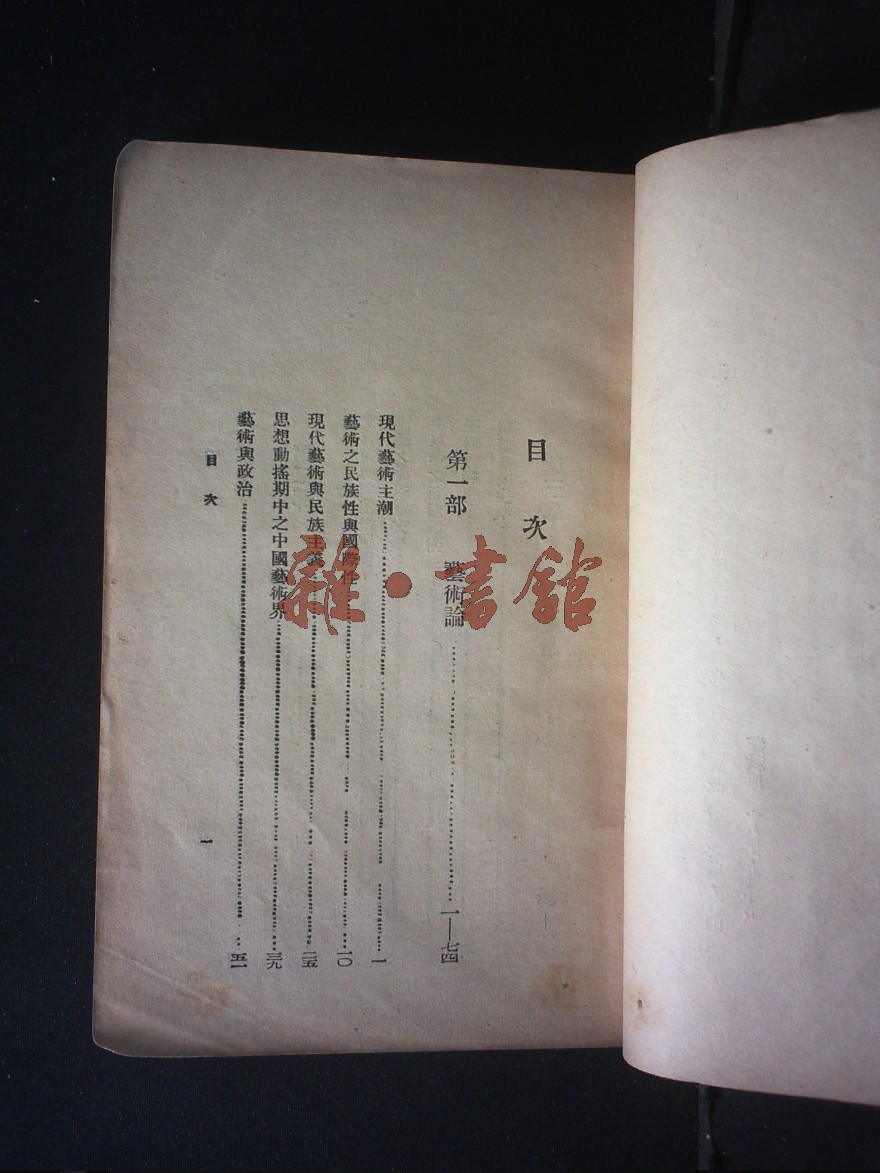 目次
第一部　藝術論……一—七四
現代藝術主潮……一
藝術之民族性與國際性……一〇
現代藝術與民族主義……二五
思想動搖期中之中國藝術界……三九
藝術與政治……五一
目次　一
雜·書館